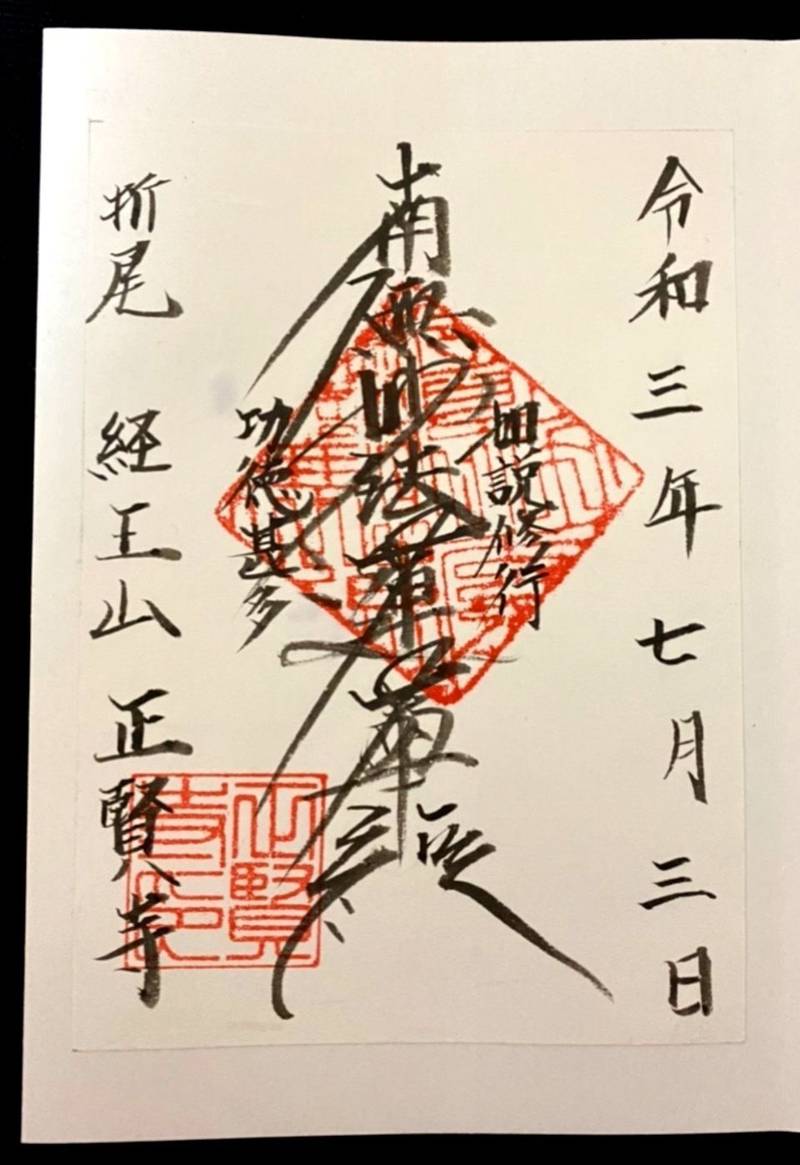 令和三年七月三日
如説修行
南無妙法蓮華経
功徳甚多
折尾 経王山 正賢寺
正賢
寺印